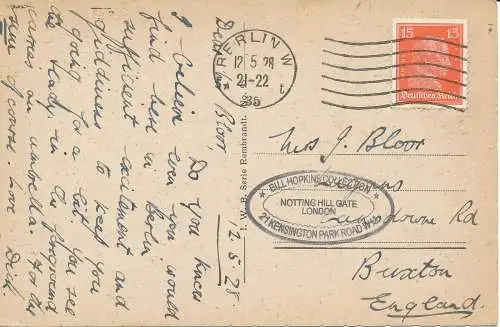 Dear Mrs Bloor, Do you know
I believe even you would
find here in Berlin
sufficient excitement and
giddiness to keep you
going for a bit. You see
the lady in the foreground
carries an umbrella. For the
sun of course. Love
Dick.
2.5.28
I. W. B. Serie Rembrandt.
BERLIN W
12.5.28
21-22
*35 t
15 15
Deutsches Reich
Mrs J. Bloor
Lansdowne Rd
Buxton
England.
* BILL HOPKINS COLLECTION *
NOTTING HILL GATE
LONDON
21 KENSINGTON PARK ROAD W11